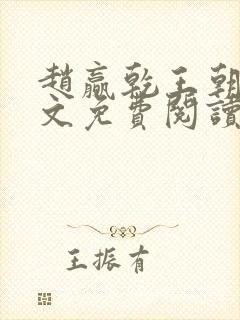 趙贏乾王朝
文免費閱讀
王振有